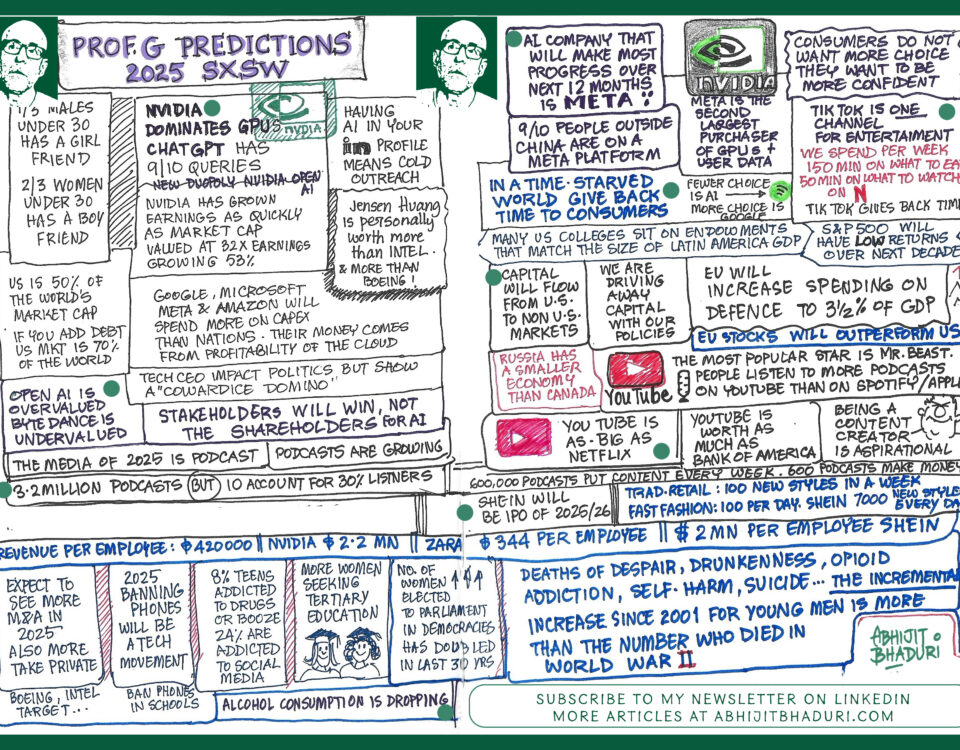 PROF. G PREDICTIONS
2025 SXSW
1/3 MALES
UNDER 30
HAS A GIRL
FRIEND
2/3 WOMEN
UNDER 30
HAS A BOY
FRIEND
NVIDIA
DOMINATES GPUS
NVIDIA
CHATGPT HAS
9/10 QUERIES
NEW DUOPOLY NVIDIA-OPEN
AI
NVIDIA HAS GROWN
EARNINGS AS QUICKLY
AS MARKET CAP
VALUED AT 32X EARNINGS
GROWING 53%
HAVING
AI IN YOUR
in PROFILE
MEANS COLD
OUTREACH
Jensen Huang
is personally
worth more
than INTEL.
& MORE THAN
BOEING!
US IS 50% OF
THE WORLD'S
MARKET CAP
IF YOU ADD DEBT
US MKT IS 70%
OF THE WORLD
GOOGLE, MICROSOFT
META & AMAZON WILL
SPEND MORE ON CAPEX
THAN NATIONS. THEIR MONEY COMES
FROM PROFITABILITY OF THE CLOUD
TECH CEO IMPACT POLITICS BUT SHOW
A "COWARDICE DOMINO"
OPEN AI IS
OVERVALUED
BYTEDANCE IS
UNDERVALUED
STAKEHOLDERS WILL WIN, NOT
THE SHAREHOLDERS FOR AI
THE MEDIA OF 2025 IS PODCAST
PODCASTS ARE GROWING
3.2 MILLION PODCASTS BUT 10 ACCOUNT FOR 30% LISTNERS
AI COMPANY THAT
WILL MAKE MOST
PROGRESS OVER
NEXT 12 MONTHS
IS META
NVIDIA
META IS THE
SECOND
LARGEST
PURCHASER
OF GPUS +
USER DATA
CONSUMERS DO NOT
WANT MORE CHOICE
THEY WANT TO BE
MORE CONFIDENT
9/10 PEOPLE OUTSIDE
CHINA ARE ON A
META PLATFORM
TIK TOK IS ONE
CHANNEL
FOR ENTERTAIMENT
WE SPEND PER WEEK
150 MIN ON WHAT TO EA
50 MIN ON WHAT TO WATCH
ON N
TIK TOK GIVES BACK TIME
IN A TIME-STARVED
WORLD GIVE BACK
TIME TO CONSUMERS
FEWER CHOICE
IS AI
MORE CHOICE IS
GOOGLE
MANY US COLLEGES SIT ON ENDOWMENTS
THAT MATCH THE SIZE OF LATIN AMERICA GDP
S&P 500 WILL
HAVE LOW RETURNS
OVER NEXT DECADE
CAPITAL
WILL FLOW
FROM U.S.
TO NON U.S.
MARKETS
WE ARE
DRIVING
AWAY
CAPITAL
WITH OUR
POLICIES
EU WILL
INCREASE SPENDING ON
DEFENCE TO 3½% OF GDP
EU STOCKS WILL OUTPERFORM US
RUSSIA HAS
A SMALLER
ECONOMY
THAN CANADA
YouTube
THE MOST POPULAR STAR IS MR. BEAST.
PEOPLE LISTEN TO MORE PODCASTS
ON YOUTUBE THAN ON SPOTIFY/APPL
YOU TUBE IS
AS-BIG AS
NETFLIX
YOUTUBE IS
WORTH AS
MUCH AS
BANK OF AMERICA
BEING A
CONTENT
CREATOR
IS ASPIRATIONAL
600,000 PODCASTS PUT CONTENT EVERY WEEK. 600 PODCASTS MAKE MONEY
SHEIN WILL
BE IPO OF 2025/26
TRAD. RETAIL: 100 NEW STYLES IN A WEEK
FAST FASHION: 100 PER DAY. SHEIN 7000 NEW STYLES
EVERY DA
REVENUE PER EMPLOYEE: $420000 || NVIDIA $2.2 MN || ZARA $344 PER EMPLOYEE || $2 MN PER EMPLOYEE SHEIN
EXPECT TO
SEE MORE
M&A IN
2025
ALSO MORE
TAKE PRIVATE
BOEING, INTEL
TARGET...
2025
BANNING
PHONES
WILL BE
A TECH
MOVEMENT
BAN PHONES
IN SCHOOLS
8% TEENS
ADDICTED
TO DRUGS
OR BOOZE
24% ARE
ADDICTED
TO SOCIAL
MEDIA
MORE WOMEN
SEEKING
TERTIARY
EDUCATION
NO. OF
WOMEN
ELECTED
TO PARLIAMENT
IN DEMOCRACIES
HAS DOUBLED
IN LAST 30 YRS
ALCOHOL CONSUMPTION IS DROPPING
DEATHS OF DESPAIR, DRUNKENNESS, OPIOID
ADDICTION, SELF-HARM, SUICIDE... THE INCREMENTA
INCREASE SINCE 2001 FOR YOUNG MEN IS MORE
THAN THE NUMBER WHO DIED IN
WORLD WAR II
ABHIJIT
BHADURI
SUBSCRIBE TO MY NEWSLETTER ON LINKEDIN
MORE ARTICLES AT ABHIJITBHADURI.COM